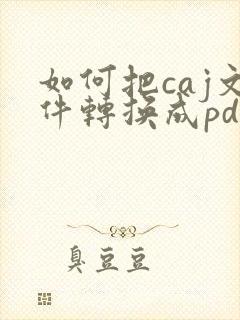 如何把caj文
件轉換成pd
臭豆豆